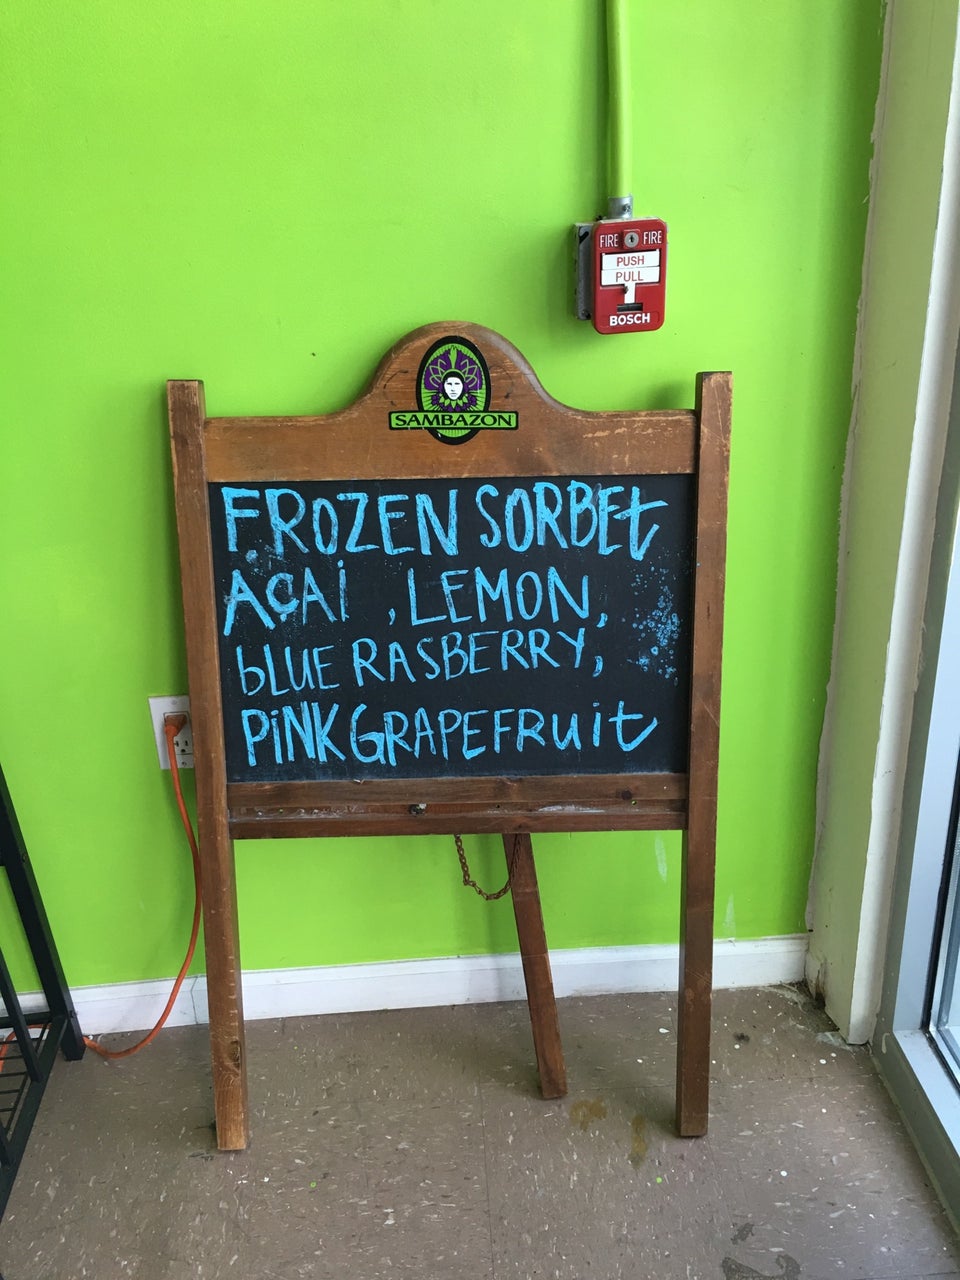 FIRE FIRE
PUSH
PULL
BOSCH
SAMBAZON
FROZEN SORBEt
AÇAi , LEMON,
bLUE RASBERRY,
PiNK GRAPEFRuit